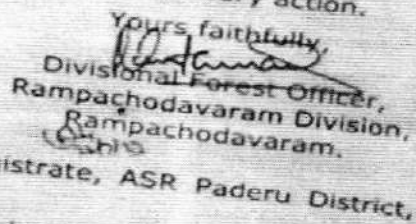 action.
Yours faithfully,
Divisional Forest Officer,
Rampachodavaram Division,
Rampachodavaram.
istrate, ASR Paderu District,